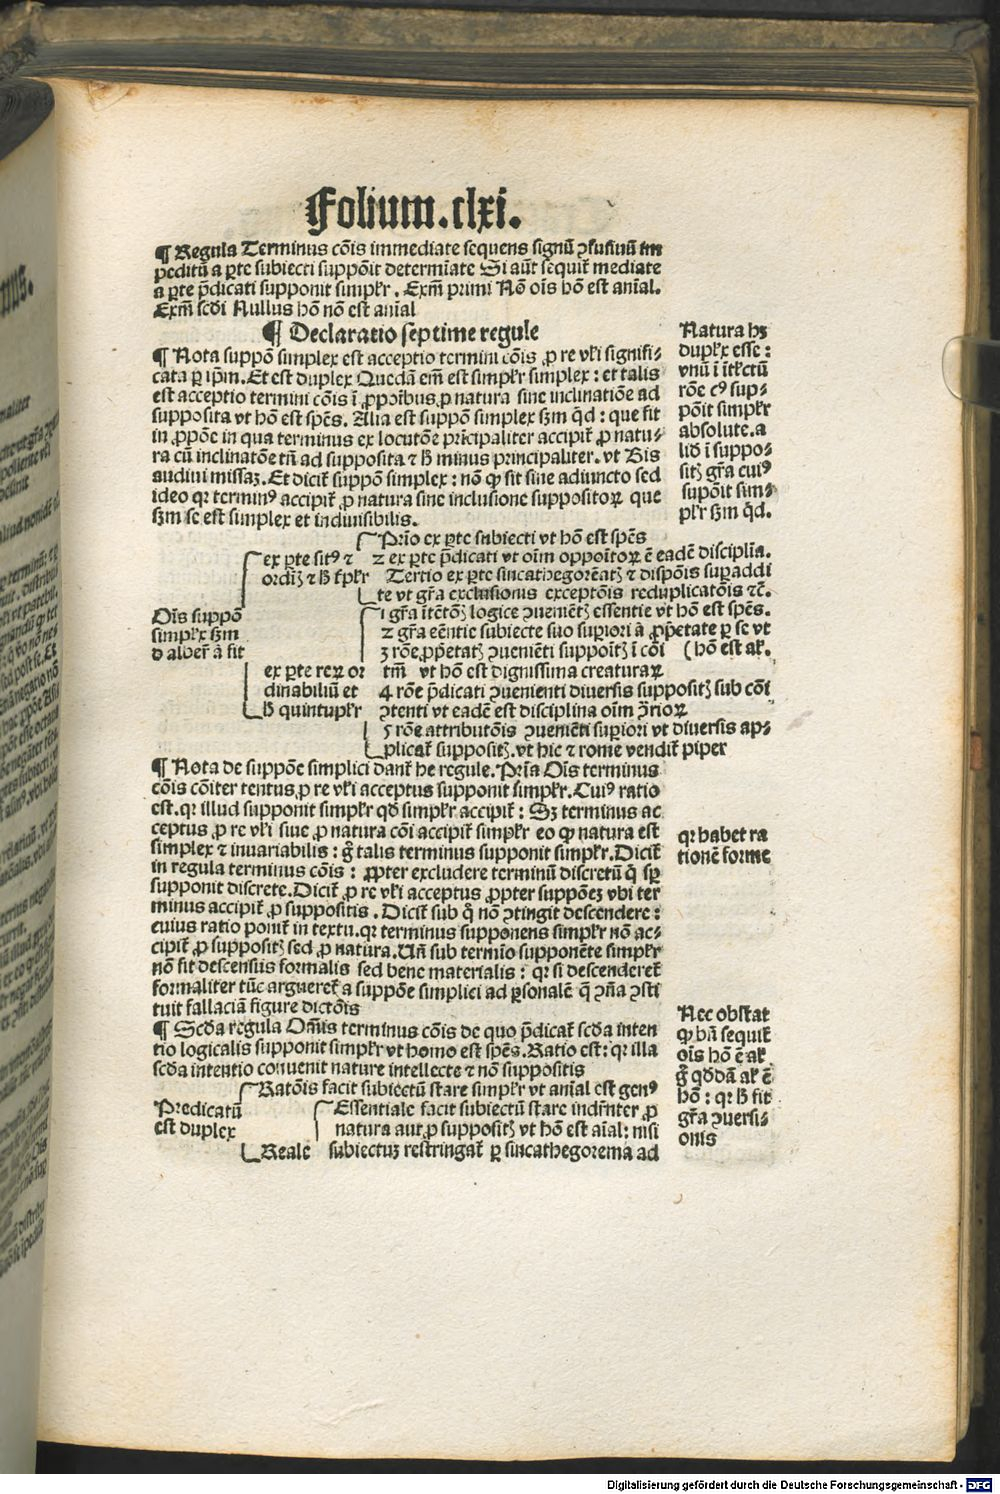 Folium.clxi.
¶ Regula Terminus cōis immediate sequens signū ꝯfusiuū im
peditū a ꝑte subiecti suppōit determīate Si aūt sequit̄ mediate
a ꝑte p̄dicati supponit simpl̄r. Exm̄ primi Nō oīs hō est anīal.
Exm̄ scd̄i Nullus hō nō est anīal
¶ Declaratio septime regule
¶ Nota suppō simplex est acceptio termini cōis ꝓ re vl̄i signifi-
cata ꝑ ip̄m. Et est duplex Quedā em̄ est simpl̄r simplex: et talis
est acceptio termini cōis ī ꝓpōibus ꝓ natura sine inclinatiōe ad
supposita vt hō est sp̄es. Alia est suppō simplex ẜm q̄d: que fit
in ꝓpōe in qua terminus ex locutōe prīcipaliter accipit̄ ꝓ natu-
ra cū inclinatōe tn̄ ad supposita ⁊ h̄ minus principaliter. vt Bis
audiui missaꝫ. Et dicit̄ suppō simplex: nō ꝙ sit sine adiuncto sed
ideo qꝛ terminꝰ accipit̄ ꝓ natura sine inclusione suppositoꝝ que
ẜm se est simplex et indiuisibilis.
Natura hꝫ
dupl̄x esse:
vnū ī ītl̄ectū
rōe cꝰ sup-
pōit simpl̄r
absolute. a
liđ ī suppo-
sitꝭ gr̄a cuiꝰ
supōit sim-
pl̄r ẜm q̄d.
Oīs suppō
simpl̄x ẜm
d alber̄ ā fit
ex ꝑte sitꝰ ⁊
ordīꝭ ⁊ h̄ tͥpl̄r
Prīo ex ꝑte subiecti vt hō est sp̄es
2 ex ꝑte p̄dicati vt oīm oppoītoꝝ ē eadē disciplīa.
Tertio ex ꝑte sincathegorēatꝭ ⁊ dispōis suꝑaddi
te vt gr̄a exclusionis exceptōis reduplicatōis ⁊c̄.
ex ꝑte reꝝ or
dinabiliū et
h̄ quintupl̄r
1 gr̄a ītētōꝭ logice ꝯueniētꝭ essentie vt hō est sp̄es.
2 gr̄a eēntie subiecte suo suꝑiori ā ꝓpͥetate ꝑ se vt
3 rōe ꝓpͥetatꝭ ꝯueniēti suppoītꝭ ī cōi (hō est al̄.
tm̄ vt hō est dignissima creaturaꝝ
4 rōe p̄dicati ꝯuenienti diuersis suppositꝭ sub cōi
ꝯtenti vt eadē est disciplina oīm ꝯ̄rioꝝ
5 rōe attributōis ꝯueniēti suꝑiori vt diuersis ap-
plicat̄ suppositꝭ. vt hic ⁊ rome vendit̄ piper
¶ Nota de suppōe simplici dant̄ he regule. Prīa Oīs terminus
cōis cōiter tentus ꝓ re vl̄i acceptus supponit simpl̄r. Cuiꝰ ratio
est. qꝛ illud supponit simpl̄r qđ simpl̄r accipit̄: Sꝫ terminus ac
ceptus ꝓ re vl̄i siue ꝓ natura cōi accipit̄ simpl̄r eo ꝙ natura est
simplex ⁊ inuariabilis: gͦ talis terminus supponit simpl̄r. Dicit̄
in regula terminus cōis: ꝓpter excludere terminū discretū q̄ sꝑ
supponit discrete. Dicit̄ ꝓ re vl̄i acceptus ꝓpter suppōeꝫ vbi ter
minus accipit̄ ꝓ suppositis. Dicit̄ sub qͦ nō ꝯtingit descendere:
cuius ratio ponit̄ in textu. qꝛ terminus supponens simpl̄r nō ac-
cipit̄ ꝓ suppositꝭ sed ꝓ natura. Un̄ sub termīo supponēte simpl̄r
nō fit descensus formalis sed bene materialis: qꝛ si descenderet̄
formaliter tūc argueret̄ a suppōe simplici ad ꝑsonalē q̄ ꝯ̄ña ꝯsti
tuit fallaciā figure dictōis
qꝛ habet ra
tionē forme
¶ Scd̄a regula Om̄is terminus cōis de quo p̄dicat̄ scd̄a inten
tio logicalis supponit simpl̄r vt homo est sp̄es. Ratio est: qꝛ illa
scd̄a intentio conuenit nature intellecte ⁊ nō suppositis
Nec obstat
ꝙ bn̄ sequit̄
oīs hō ē al̄
gͦ qđdā al̄ ē
hō: qꝛ h̄ fit
gr̄a ꝯuersi-
onis
Predicatū
est duplex
Ratōis facit subiectū stare simpl̄r vt anīal est genꝰ
Reale
Essentiale facit subiectū stare indr̄nter ꝓ
natura aut ꝓ suppositꝭ vt hō est aīal: nisi
subiectuꝫ restringat̄ ꝑ sincathegorema ad
Digitalisierung gefördert durch die Deutsche Forschungsgemeinschaft - DFG